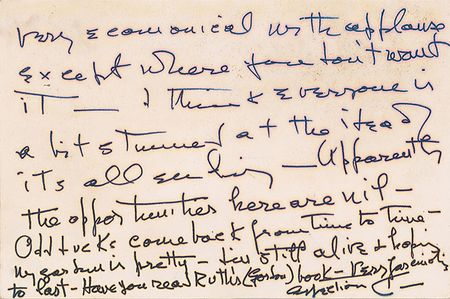 very economical with applause
except where you don't want
it — I think everyone is
a bit stunned at the idea
it's all ending — Apparently
the opportunities here are nil —
Odd tucks come back from time to time —
my garden is pretty — Lew still alive & hoping
to last — Have you read Ruth's (Gordon) book — Very
affection